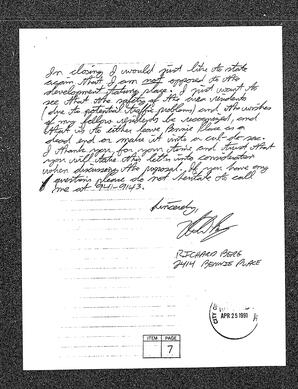 In closing I would just like to state
again that I am not opposed to the
development taking place. I just want to
see that the safety of the area residents
(due to potential traffic problems) and the wishes
of my fellow residents be recognized, and
that is to either leave Bennie Place as a
dead end or make it into a cul-de-sac.
I thank you for your time and trust that
you will take this letter into consideration
when discussing the proposal. If you have any
questions please do not hesitate to call
me at 941-9143.
Sincerely,
RICHARD BERG
2414 BENNIE PLACE
CITY
APR 25 1991
ITEM PAGE
7